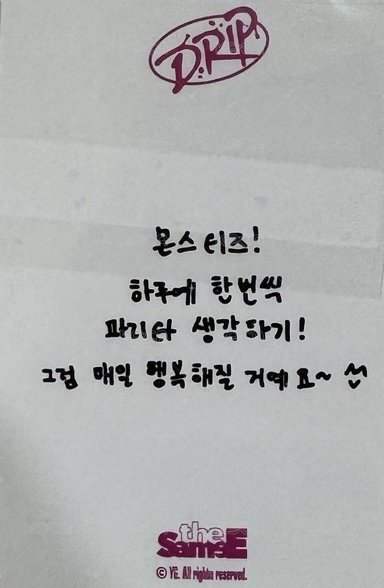 DRIP
몬스티즈!
하루에 한번씩
파리타 생각하기!
그럼 매일 행복해질 거예요~
the
SameE
© YG. All rights reserved.